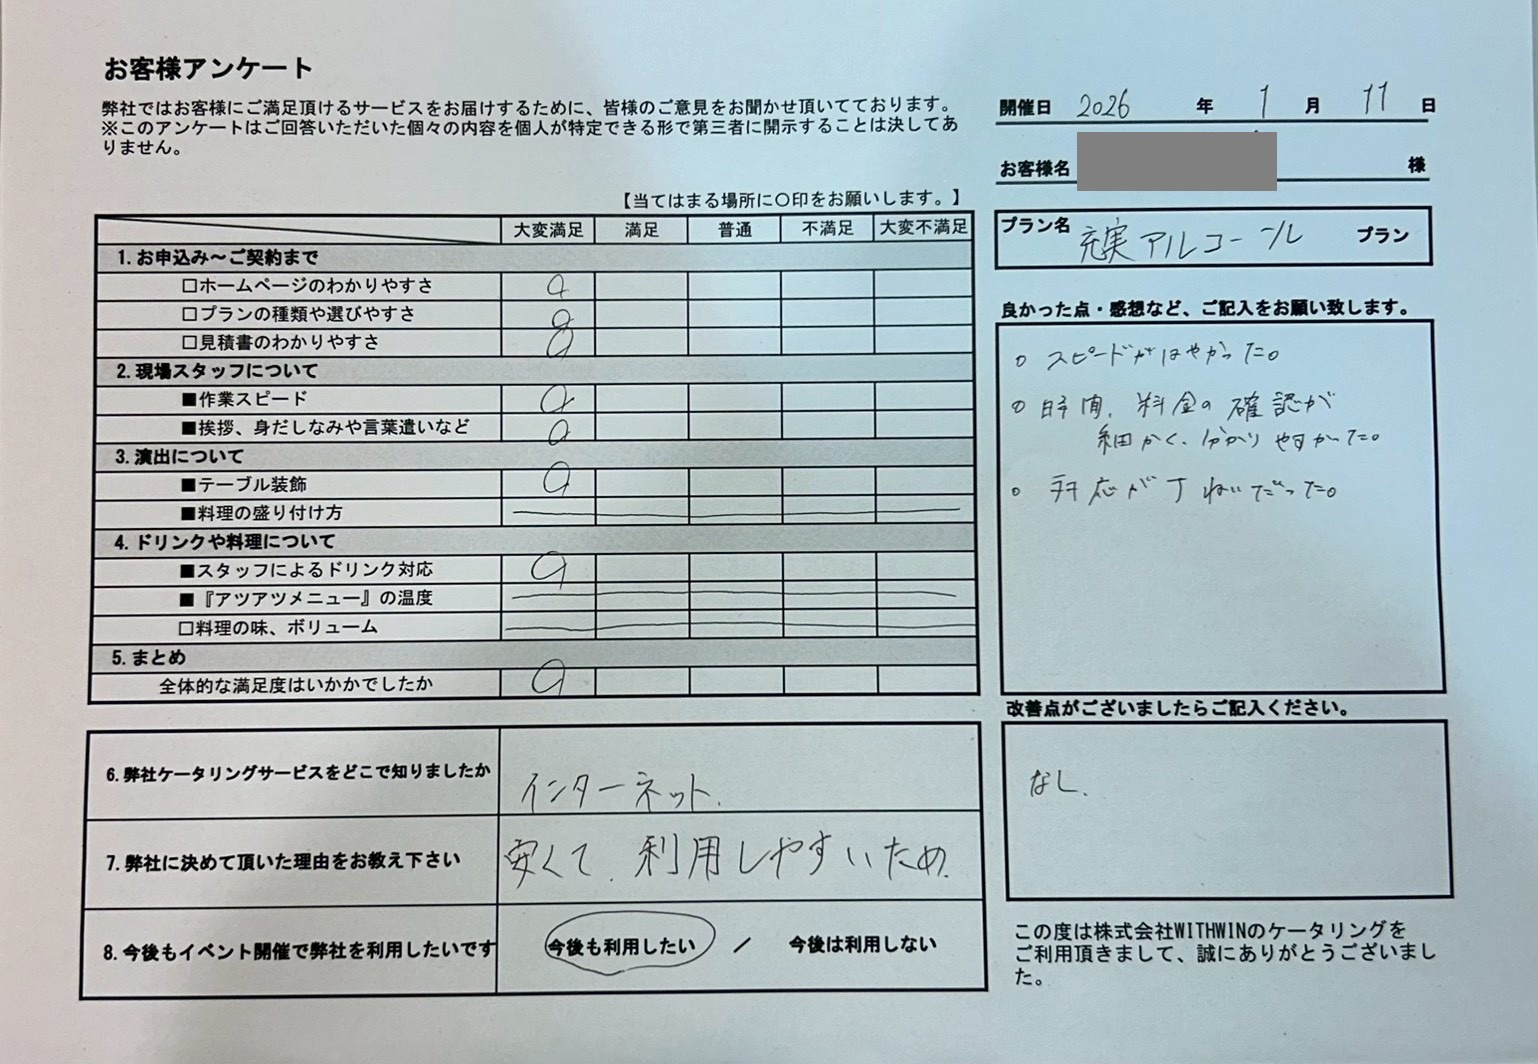 お客様アンケート
弊社ではお客様にご満足頂けるサービスをお届けするために、皆様のご意見をお聞かせ頂いてております。
※このアンケートはご回答いただいた個々の内容を個人が特定できる形で第三者に開示することは決してあ
りません。
開催日 2026 年 1 月 11 日
お客様名 様
プラン名 充実アルコール プラン
【当てはまる場所に〇印をお願いします。】
大変満足 満足 普通 不満足 大変不満足
1.お申込み～ご契約まで
□ホームページのわかりやすさ ○
□プランの種類や選びやすさ ○
□見積書のわかりやすさ ○
2.現場スタッフについて
■作業スピード ○
■挨拶、身だしなみや言葉遣いなど ○
3.演出について
■テーブル装飾 ○
■料理の盛り付け方
4.ドリンクや料理について
■スタッフによるドリンク対応 ○
■『アツアツメニュー』の温度
□料理の味、ボリューム
5.まとめ
全体的な満足度はいかかでしたか ○
6.弊社ケータリングサービスをどこで知りましたか インターネット.
7.弊社に決めて頂いた理由をお教え下さい 安くて、利用しやすいため.
8.今後もイベント開催で弊社を利用したいです 今後も利用したい ／ 今後は利用しない
良かった点・感想など、ご記入をお願い致します。
○ スピードがはやかった。
○ 時間、料金の確認が
細かく、分かりやすかった。
○ 対応が丁ねいだった。
改善点がございましたらご記入ください。
なし.
この度は株式会社WITHWINのケータリングを
ご利用頂きまして、誠にありがとうございまし
た。